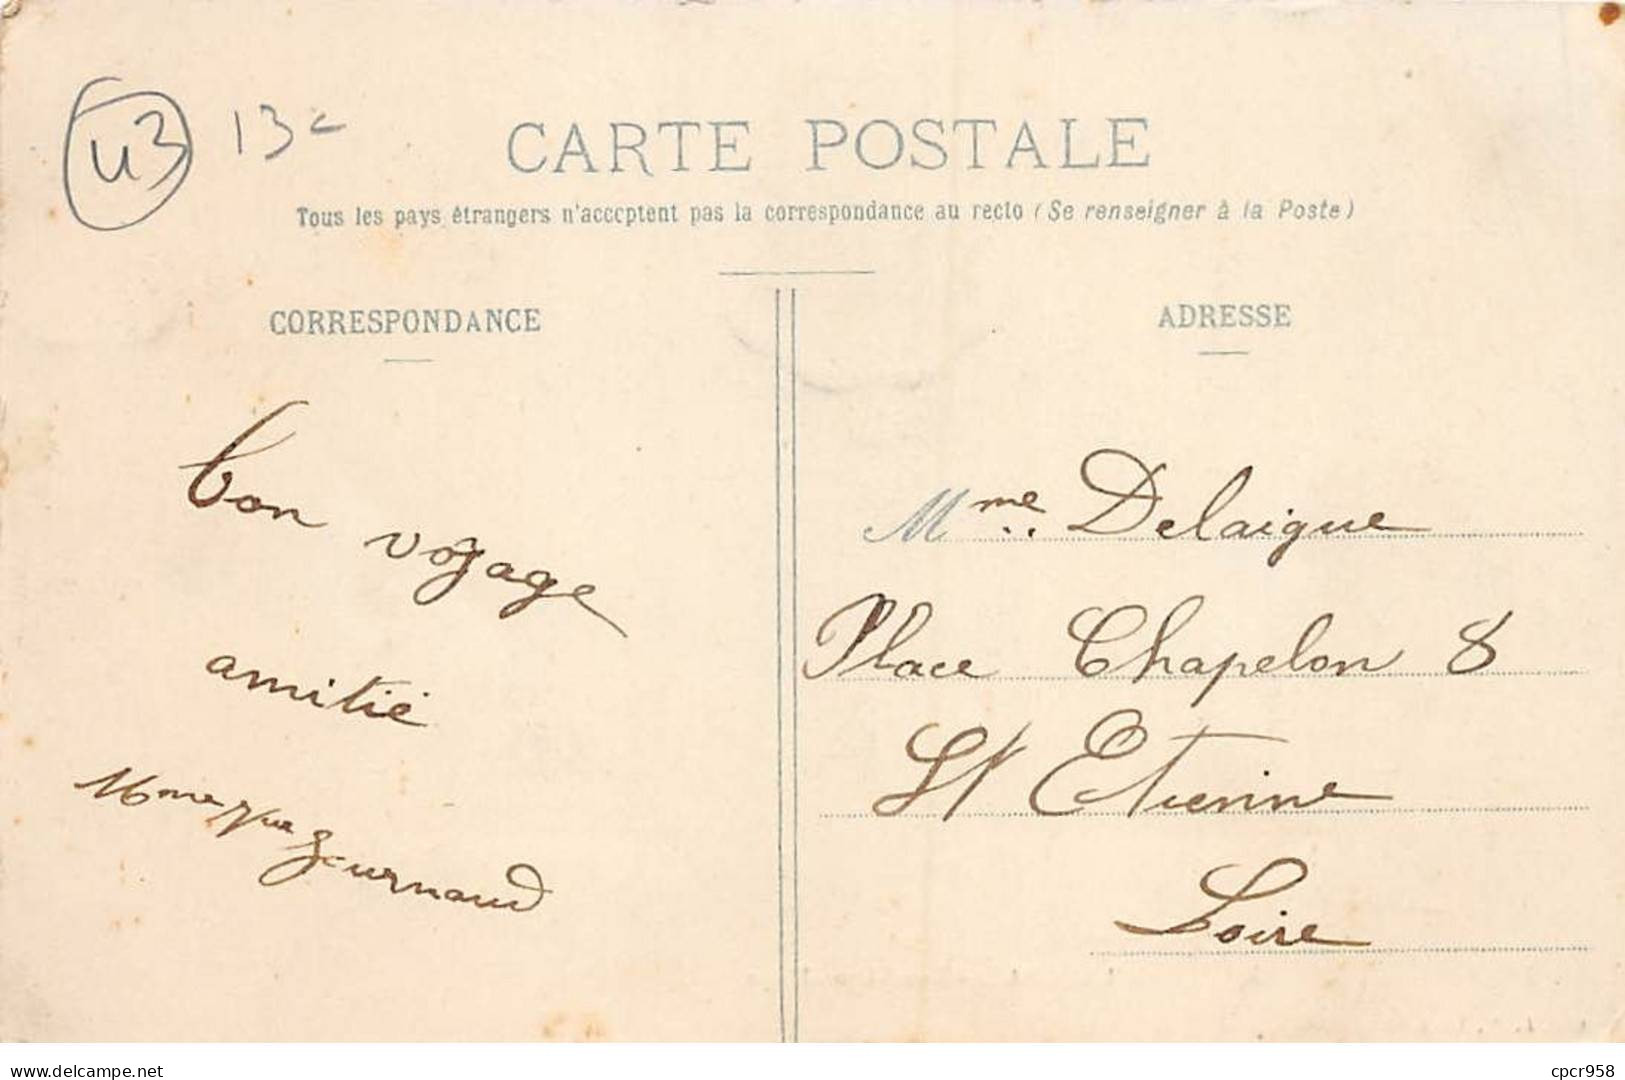 43 13c
CARTE POSTALE
Tous les pays étrangers n'acceptent pas la correspondance au recto (Se renseigner à la Poste)
CORRESPONDANCE
bon voyage
amitié
Mme
ADRESSE
Mme Delaigue
Place Chapelon 8
St Etienne
Loire
www.delcampe.net
cpcr958